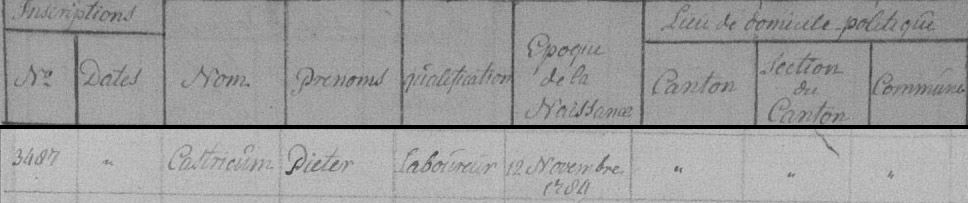 Inscriptions Lieu de domicile politique
No. Dates Nom. Prenoms qualification Epoque de la Naissance Canton Section du Canton Commune
3487 " Castricum Pieter Laboureur 12 Novembre 1784 " " "